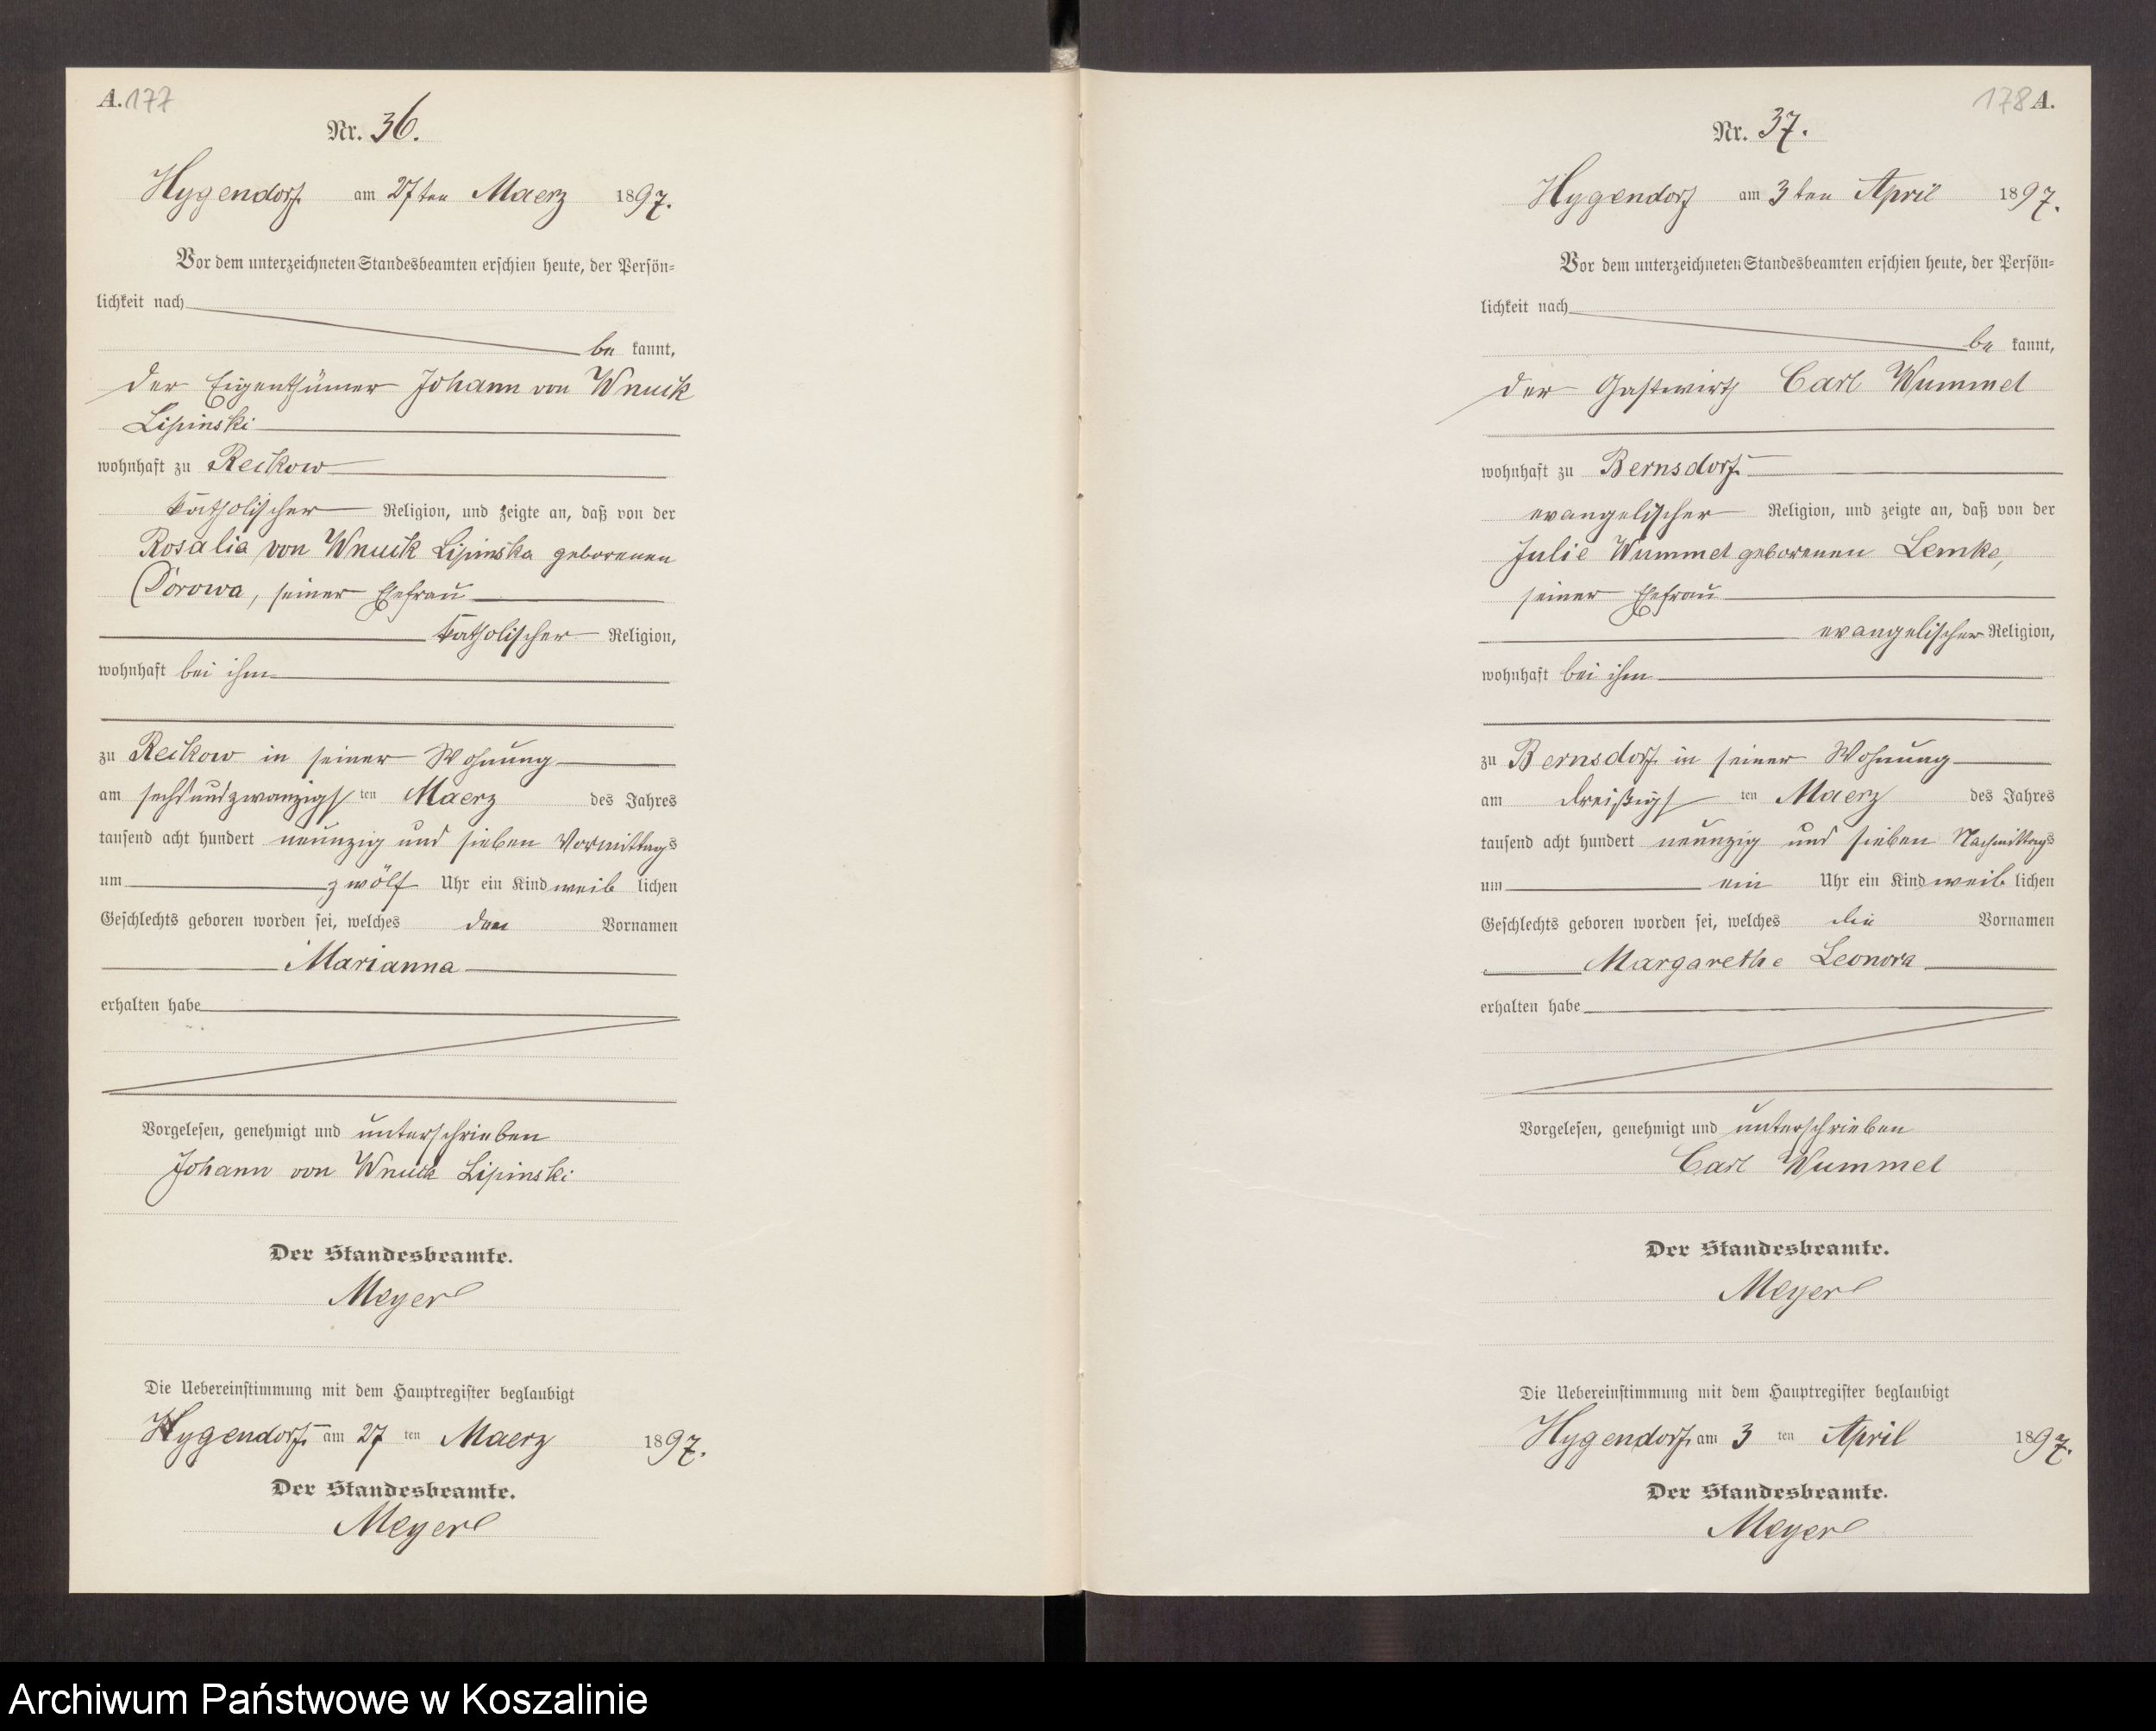 A. 177
Nr. 36.
Hygendorf am 27ten Maerz 1897.
Vor dem unterzeichneten Standesbeamten erschien heute, der Persön-
lichkeit nach
be kannt,
der Eigenthümer Johann von Wnuck
Lipinski
wohnhaft zu Reckow
katholischer Religion, und zeigte an, daß von der
Rosalia von Wnuck Lipinska geborenen
Dorowa, seiner Ehefrau
katholischer Religion,
wohnhaft bei ihm
zu Reckow in seiner Wohnung
am sechsundzwanzigsten Maerz des Jahres
tausend acht hundert neunzig und sieben Vormittags
um zwölf Uhr ein Kind weib lichen
Geschlechts geboren worden sei, welches den Vornamen
Marianna
erhalten habe
Vorgelesen, genehmigt und unterschrieben
Johann von Wnuck Lipinski
Der Standesbeamte.
Meyer
Die Uebereinstimmung mit dem Hauptregister beglaubigt
Hygendorf am 27 ten Maerz 1897.
Der Standesbeamte.
Meyer
178 A.
Nr. 37.
Hygendorf am 3ten April 1897.
Vor dem unterzeichneten Standesbeamten erschien heute, der Persön-
lichkeit nach
be kannt,
der Gastwirth Carl Wummel
wohnhaft zu Bernsdorf
evangelischer Religion, und zeigte an, daß von der
Julie Wummel geborenen Lemke,
seiner Ehefrau
evangelischer Religion,
wohnhaft bei ihm
zu Bernsdorf in seiner Wohnung
am dreißigsten Maerz des Jahres
tausend acht hundert neunzig und sieben Nachmittags
um ein Uhr ein Kind weib lichen
Geschlechts geboren worden sei, welches die Vornamen
Margarethe Leonora
erhalten habe
Vorgelesen, genehmigt und unterschrieben
Carl Wummel
Der Standesbeamte.
Meyer
Die Uebereinstimmung mit dem Hauptregister beglaubigt
Hygendorf am 3 ten April 1897.
Der Standesbeamte.
Meyer
Archiwum Państwowe w Koszalinie